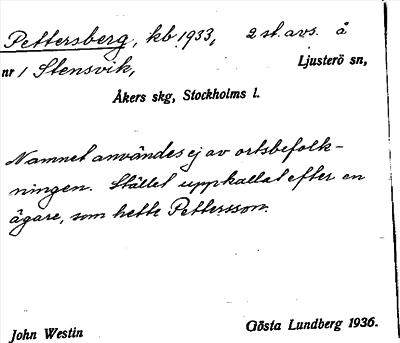 Pettersberg, kb. 1933, 2 st. avs. å
nr 1 Stensvik, Ljusterö sn,
Åkers skg, Stockholms l.
Namnet användes ej av ortsbefolk-
ningen. Stället uppkallat efter en
ägare, som hette Pettersson.
John Westin Gösta Lundberg 1936.